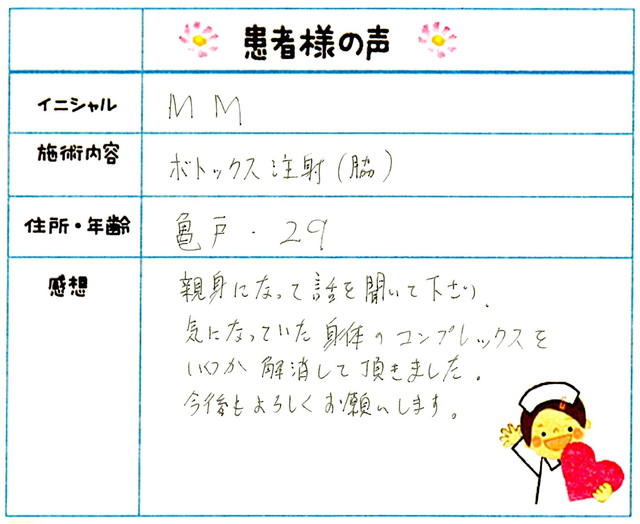 患者様の声
イニシャル MM
施術内容 ボトックス注射(脇)
住所・年齢 亀戸・29
感想 親身になって話を聞いて下さり、
気になっていた身体のコンプレックスを
いくつか解消して頂きました。
今後もよろしくお願いします。